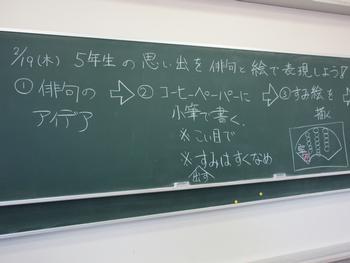 2/19(木) 5年生の思い出を俳句と絵で表現しよう!
①俳句のアイデア
⇨② コーヒーペーパーに
小筆で書く。
※こい目で
※すみはすくなめ
出す
⇨③すみ絵を
描く